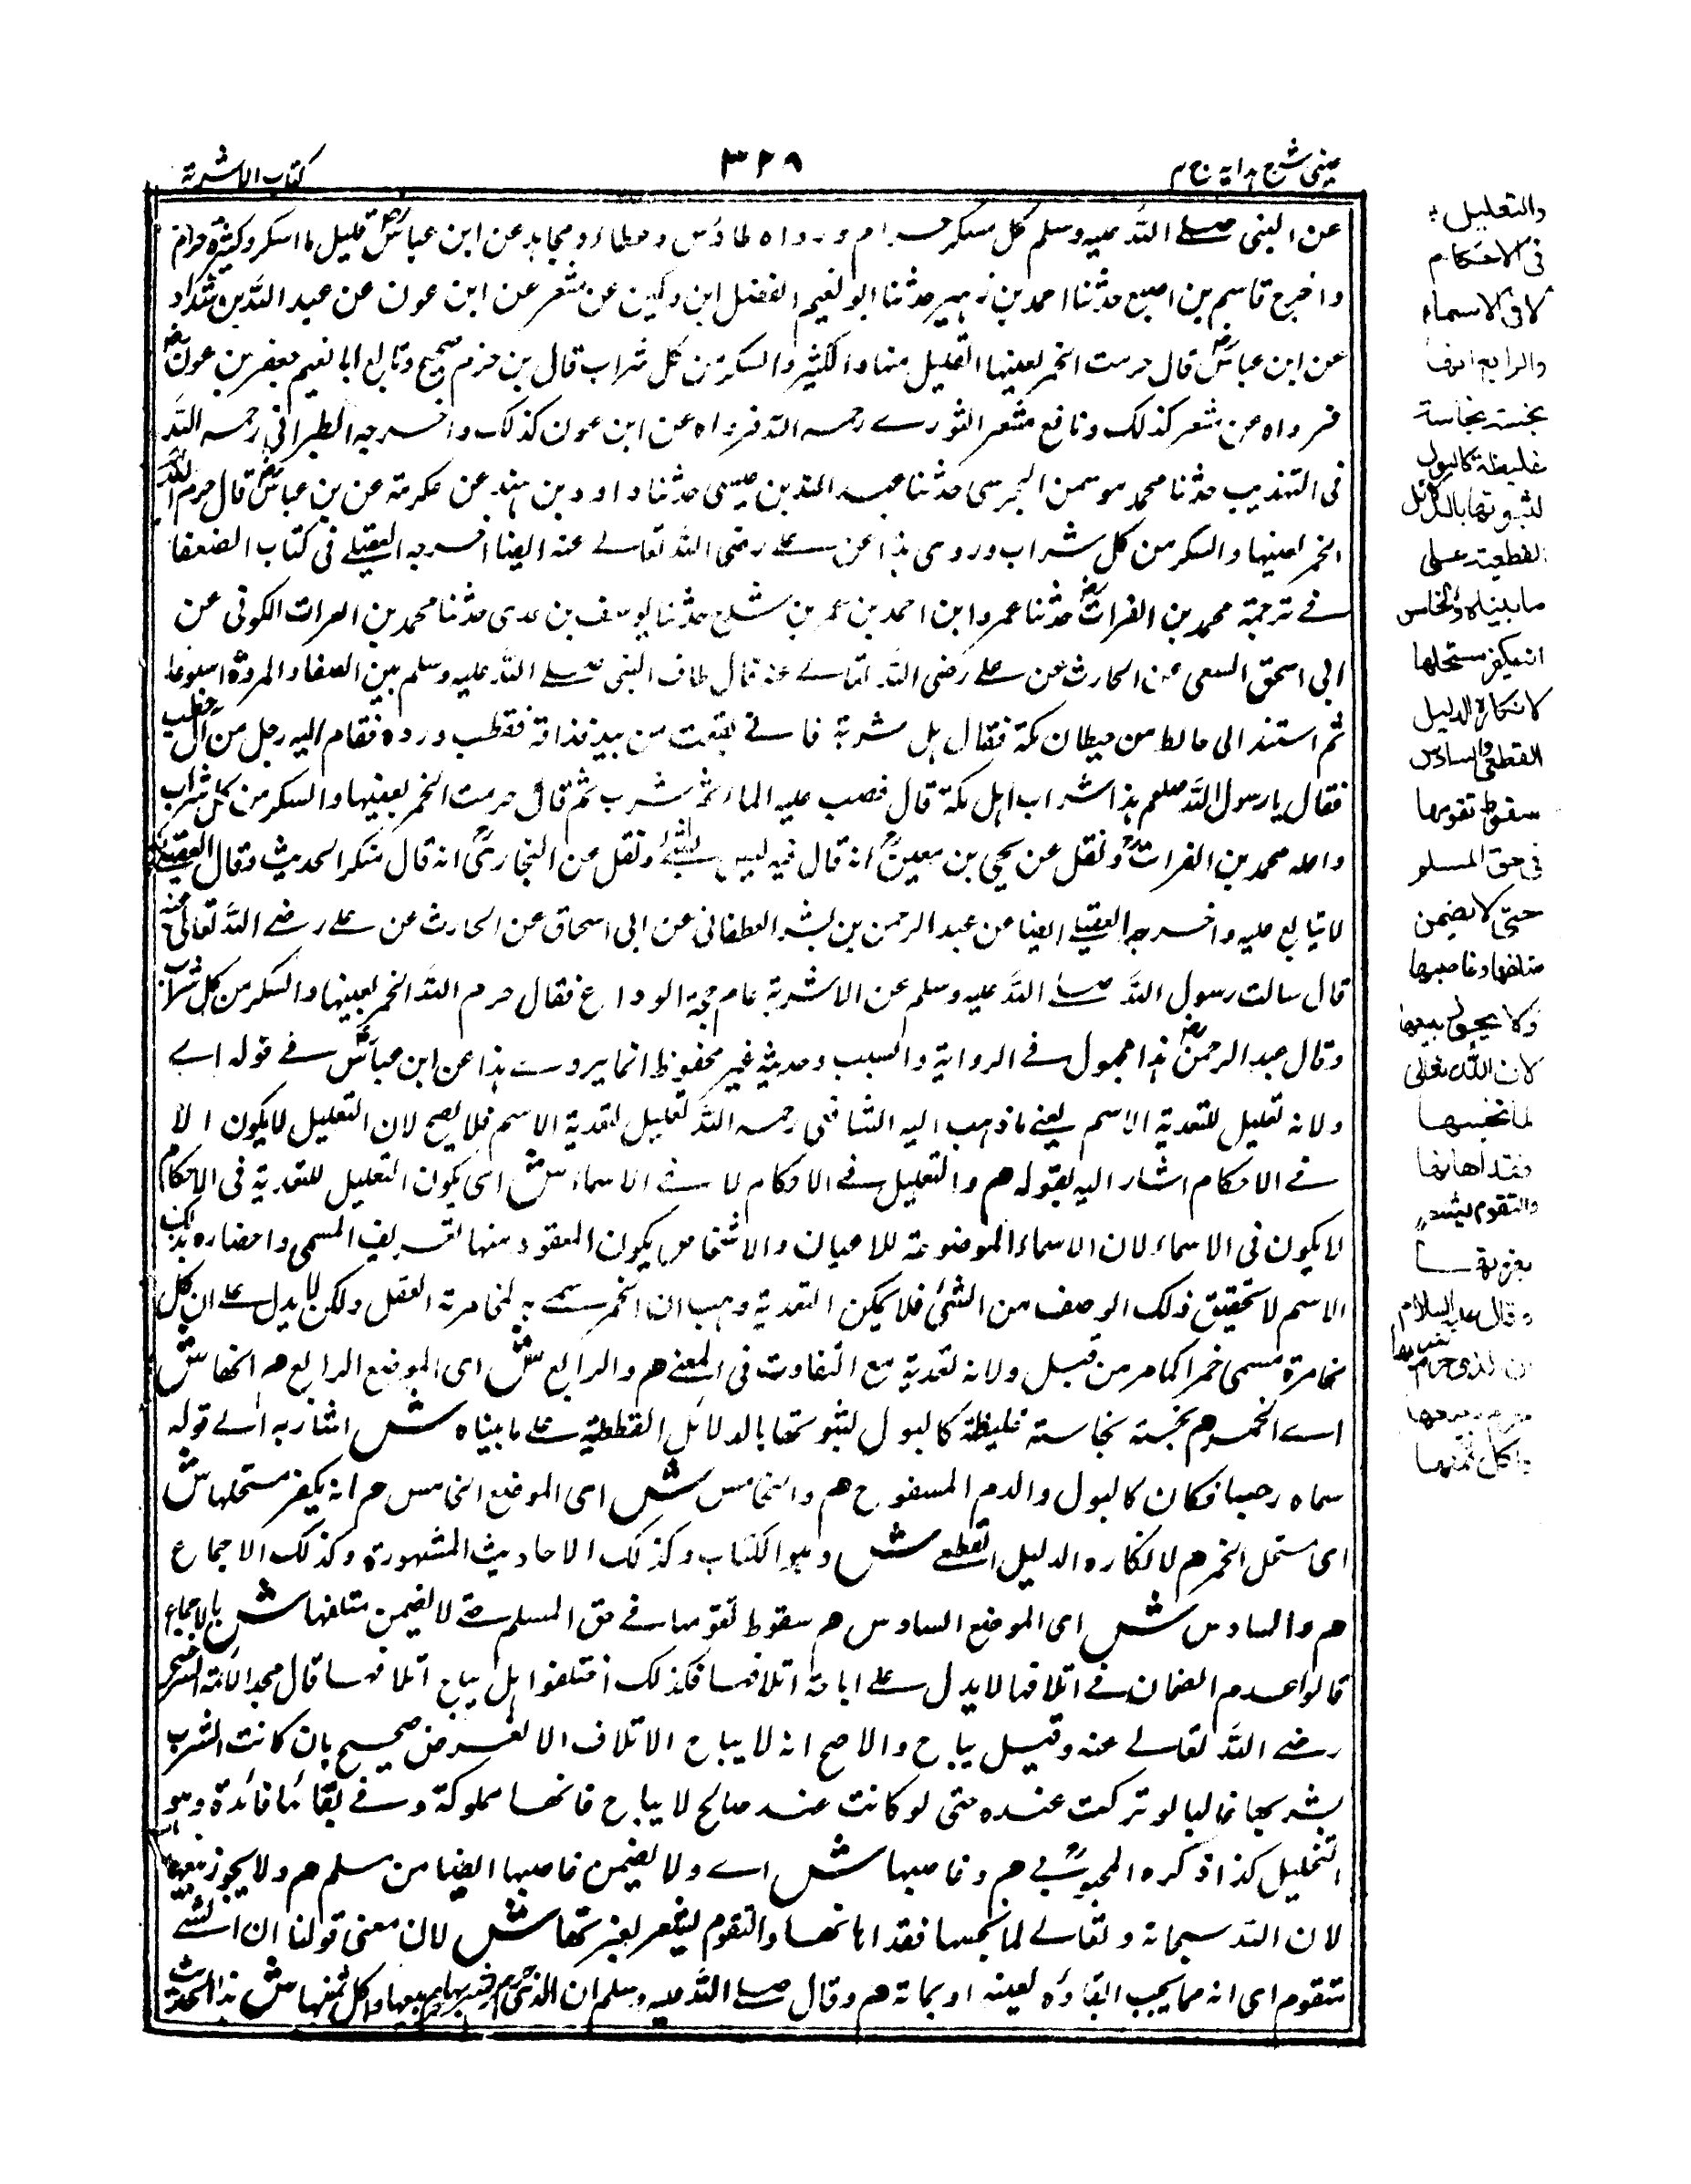 عینی شرح ہدایہ ج ٤
٣٢٩
كتاب الاشربة
عن النبى صلے اللہ علیہ وسلم كل مسكر حرام ورواہ طاؤس وعطاء ومجاہد عن ابن عباس رض قليل ما اسكر وكثيرہ حرام
واخرج قاسم بن اصبع حدثنا احمد بن زہير حدثنا ابو نعيم الفضل ابن دكين عن مشعر عن ابن عون عن عبد اللہ بن شداد
عن ابن عباس رض قال حرمت الخمر لعينہا القليل منہا والكثير والسكر من كل شراب قال بن حزم صحيح وتابع ابا نعيم جعفر بن عون
فرواہ عن مشعر كذلك وتابع مشعر الثورے رحمہ اللہ فرواہ عن ابن عون كذلك واخرجہ الطبرانى رحمہ اللہ
فى التہذيب حدثنا محمد بن موسى حدثنا عبد اللہ بن عيسى حدثنا داود بن ہند عن عكرمة عن بن عباس رض قال حرم اللہ
الخمر لعينہا والسكر من كل شراب وروى ہذا عن علے رضى اللہ تعالے عنہ ايضا اخرجہ العقيلے فى كتاب الضعفا
فے ترجمة محمد بن الفرات حدثنا عمرو ابن احمد بن عمر بن حدثنا يوسف بن عدى حدثنا محمد بن الفرات الكوفى عن
ابى اسحق السعى عن الحارث عن علے رضى اللہ تعالے عنہ قال طاف النبى صلے اللہ عليہ وسلم بين الصفا والمروة اسبوعا
ثم استند الى حائط من حيطان مكة فقال ہل شربة فاتے بقعب من نبيذ فذاقہ فقطب وردہ فقام اليہ رجل من آل خطب
فقال يا رسول اللہ صلعم ہذا شراب اہل مكة قال فصب عليہ الماء ثم شرب ثم قال حرمت الخمر بعينہا والسكر من كل شراب
واعلہ محمد بن الفرات ونقل عن يحيى بن معين انہ قال فيہ ليس بشئ ونقل عن البخارى انہ قال منكر الحديث وقال العقيلے
لا يتابع عليہ واخرجہ العقيلے ايضا عن عبد الرحمن بن بشر الغطفانى عن ابى اسحاق عن الحارث عن علے رضے اللہ تعالى عنہ
قال سالت رسول اللہ صلے اللہ عليہ وسلم عن الاشربة عام حجة الوداع فقال حرم اللہ الخمر لعينہا والسكر من كل شراب
وقال عبد الرحمن ہذا مجہول فے الرواية والنسب وحديثہ غير محفوظ انما يروے ہذا عن ابن عباس فے قولہ اے
ولانہ تعليل لتعدية الاسم يعنے ما ذہب اليہ الشافعى رحمہ اللہ تعليل لتعدية الاسم فلا يصح لان التعليل لا يكون الا
فے الاحكام اشار اليہ بقولہ ھم والتعليل فے الاحكام لا فے الاسماء ش اى يكون التعليل للتعدية فى الاحكام
لا يكون فى الاسماء لان الاسماء الموضوعة للاعيان والاشخاص يكون المقصود منہا تعريف المسمى واحضارہ بذلك
الاسم لا تحقيق ذلك الوصف من الشئ فلا يمكن التعدية وہب ان الخمر سمے بہ لمخامرتہ العقل ولكن لا يدل علے ان كل
مخامرة مسمى خمرا كما مر من قبل ولانہ تعدية مع التفاوت فى المعنے ھم والرابع ش اى الموضع الرابع ھم انہا ش
اے الخمر ھم نجستہ نجاستہ غليظة كالبول لثبوتہا بالدلائل القطعية علے ما بيناہ ش اشار بہ الے قولہ
سماہ رجسا فكان كالبول والدم المسفوح ھم والخامس ش اى الموضع الخامس ھم انہ يكفر مستحلہا ش
اى مستحل الخمر ھم لانكارہ الدليل القطعے ش وہو الكتاب وكذلك الاحاديث المشہورة وكذلك الاجماع
ھم والسادس ش اى الموضع السادس ھم سقوط تقومہا فے حق المسلم حتے لا يضمن متلفہا ش بالاجماع
قالوا عدم الضمان فے اتلافہا لا يدل علے اباحة اتلافہا فكذلك اختلفوا ہل يباح اتلافہا قال مجد الائمة السرخسى
رضے اللہ تعالے عنہ وقيل يباح والاصح انہ لا يباح الاتلاف الا لغرض صحيح بان كانت الشرب
بشربہا غالبا لو تركت عندہ حتى لو كانت عند صالح لا يباح فانہا مملوكة وفے بقائہا فائدة وہو
التخليل كذا ذكرہ المحبوبے ھم وغاصبہا ش اے ولا يضمن غاصبہا ايضا من مسلم ھم ولا يجوز بيعہا
لان اللہ سبحانہ وتعالے لما نجسہا فقد اہانہا والتقوم يشعر بعزتہا ش لان معنى قولنا ان الشے
متقوم اى انہ مما يجب ابقاؤہ لعينہ او بماتہ ھم وقال صلے اللہ عليہ وسلم ان الذى حرم شربہا حرم بيعہا واكل ثمنہا ش ہذا الحديث
والتعليل
فى الاحكام
لا فى الاسماء
والرابع انها
نجستہ نجاسة
غليظة كالبول
لثبوتها بالدلائل
القطعية على
ما بيناہ والخامس
انہ يكفر مستحلها
لانكارہ الدليل
القطعى والسادس
سقوط تقومها
فى حق المسلم
حتى لا يضمن
متلفها وغاصبها
ولا يجوز بيعها
لان اللہ تعالى
لما نجسها
فقد اهانها
والتقوم يشعر
بعزتها
وقال عليہ السلام
ان الذى حرم شربها
حرم بيعها
واكل ثمنها